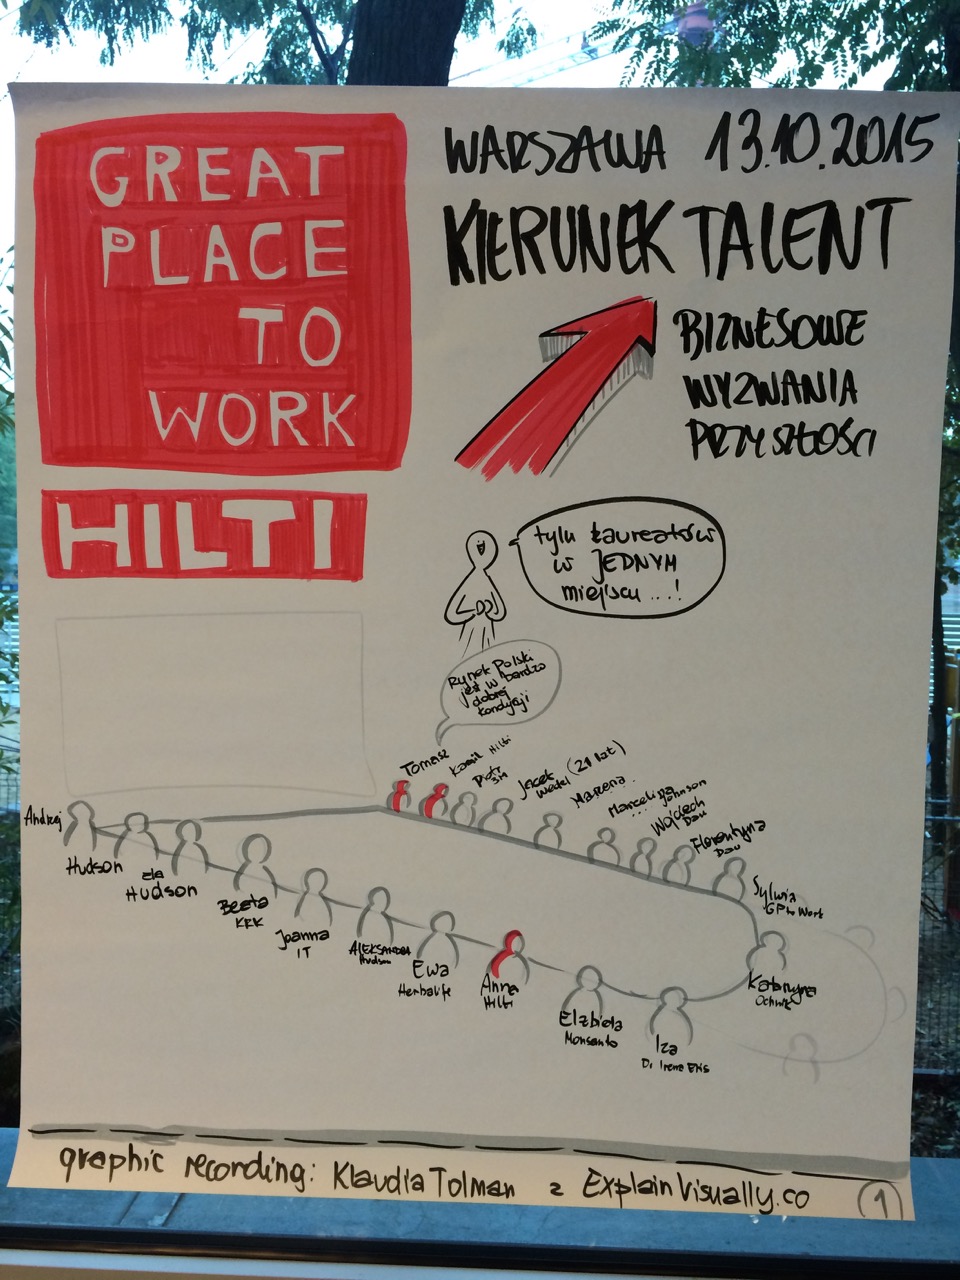 GREAT
PLACE
TO
WORK
HILTI
WARSZAWA 13.10.2015
KIERUNEK TALENT
BIZNESOWE
WYZWANIA
PRZYSZŁOŚCI
tylu Laureatów
w JEDNYM
miejscu...!
Rynek Polski
jest w bardzo
dobrej
kondycji
Tomasz
Kamil Hilti
Piotr
3M
Jacek
Wedel (21 lat)
Marzena
Marcelina
... Johnson
Wojciech
Dau
Florentyna
Dau
Sylwia
GP to Work
Katarzyna
Andrzej
Hudson
Ela
Hudson
Beata
KRK
Joanna
IT
ALEKSANDRA
Hudson
Ewa
Herbalife
Anna
Hilti
Elżbieta
Monsanto
Iza
Dr Irena Eris
graphic recording: Klaudia Tolman z ExplainVisually.co
1